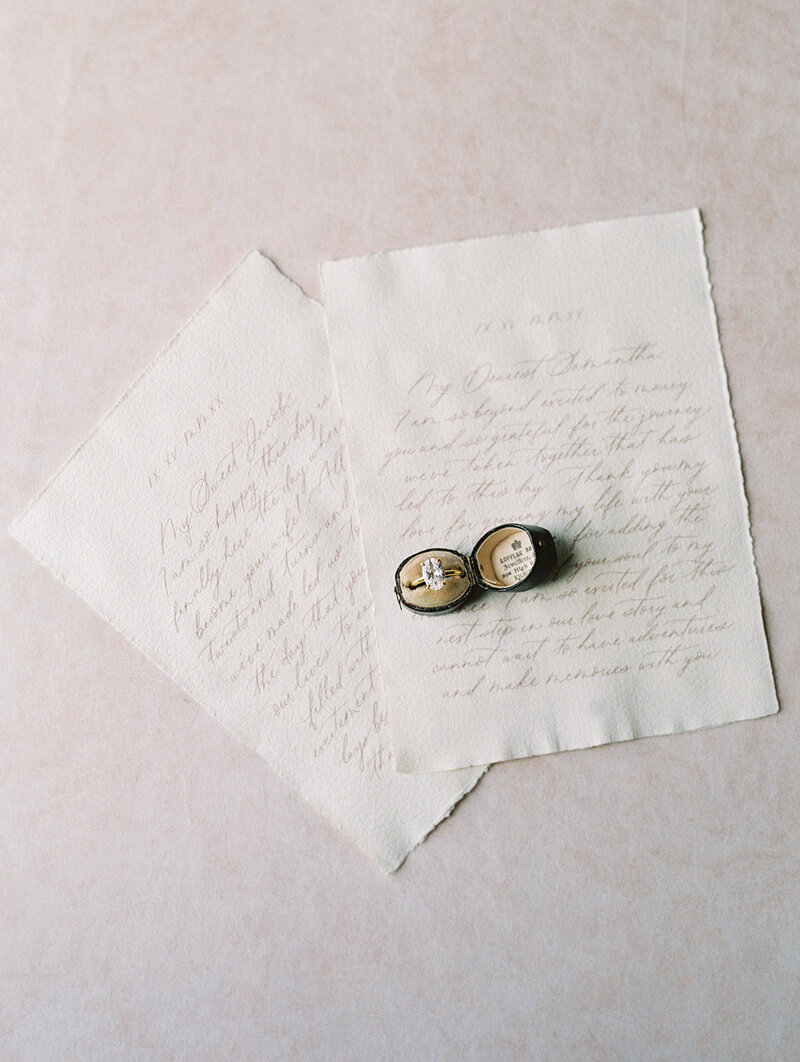 IX XV MMXX
My Sweet Jacob
I am so happy this day is
finally here the day where
become your wife! All
twists and turns and
we've made led us to
the day that your
our lives to
filled with
excitement
IX XV MMXX
My Dearest Samantha.
I am so beyond excited to marry
you and so grateful for the journey
we've taken together that has
led to this day Thank you my
love for my life with your
for adding the
your soul to my
I am so excited for this
next step in our love story and
cannot wait to have adventures
and make memories with you
LOFFLER
Jewellers,
High